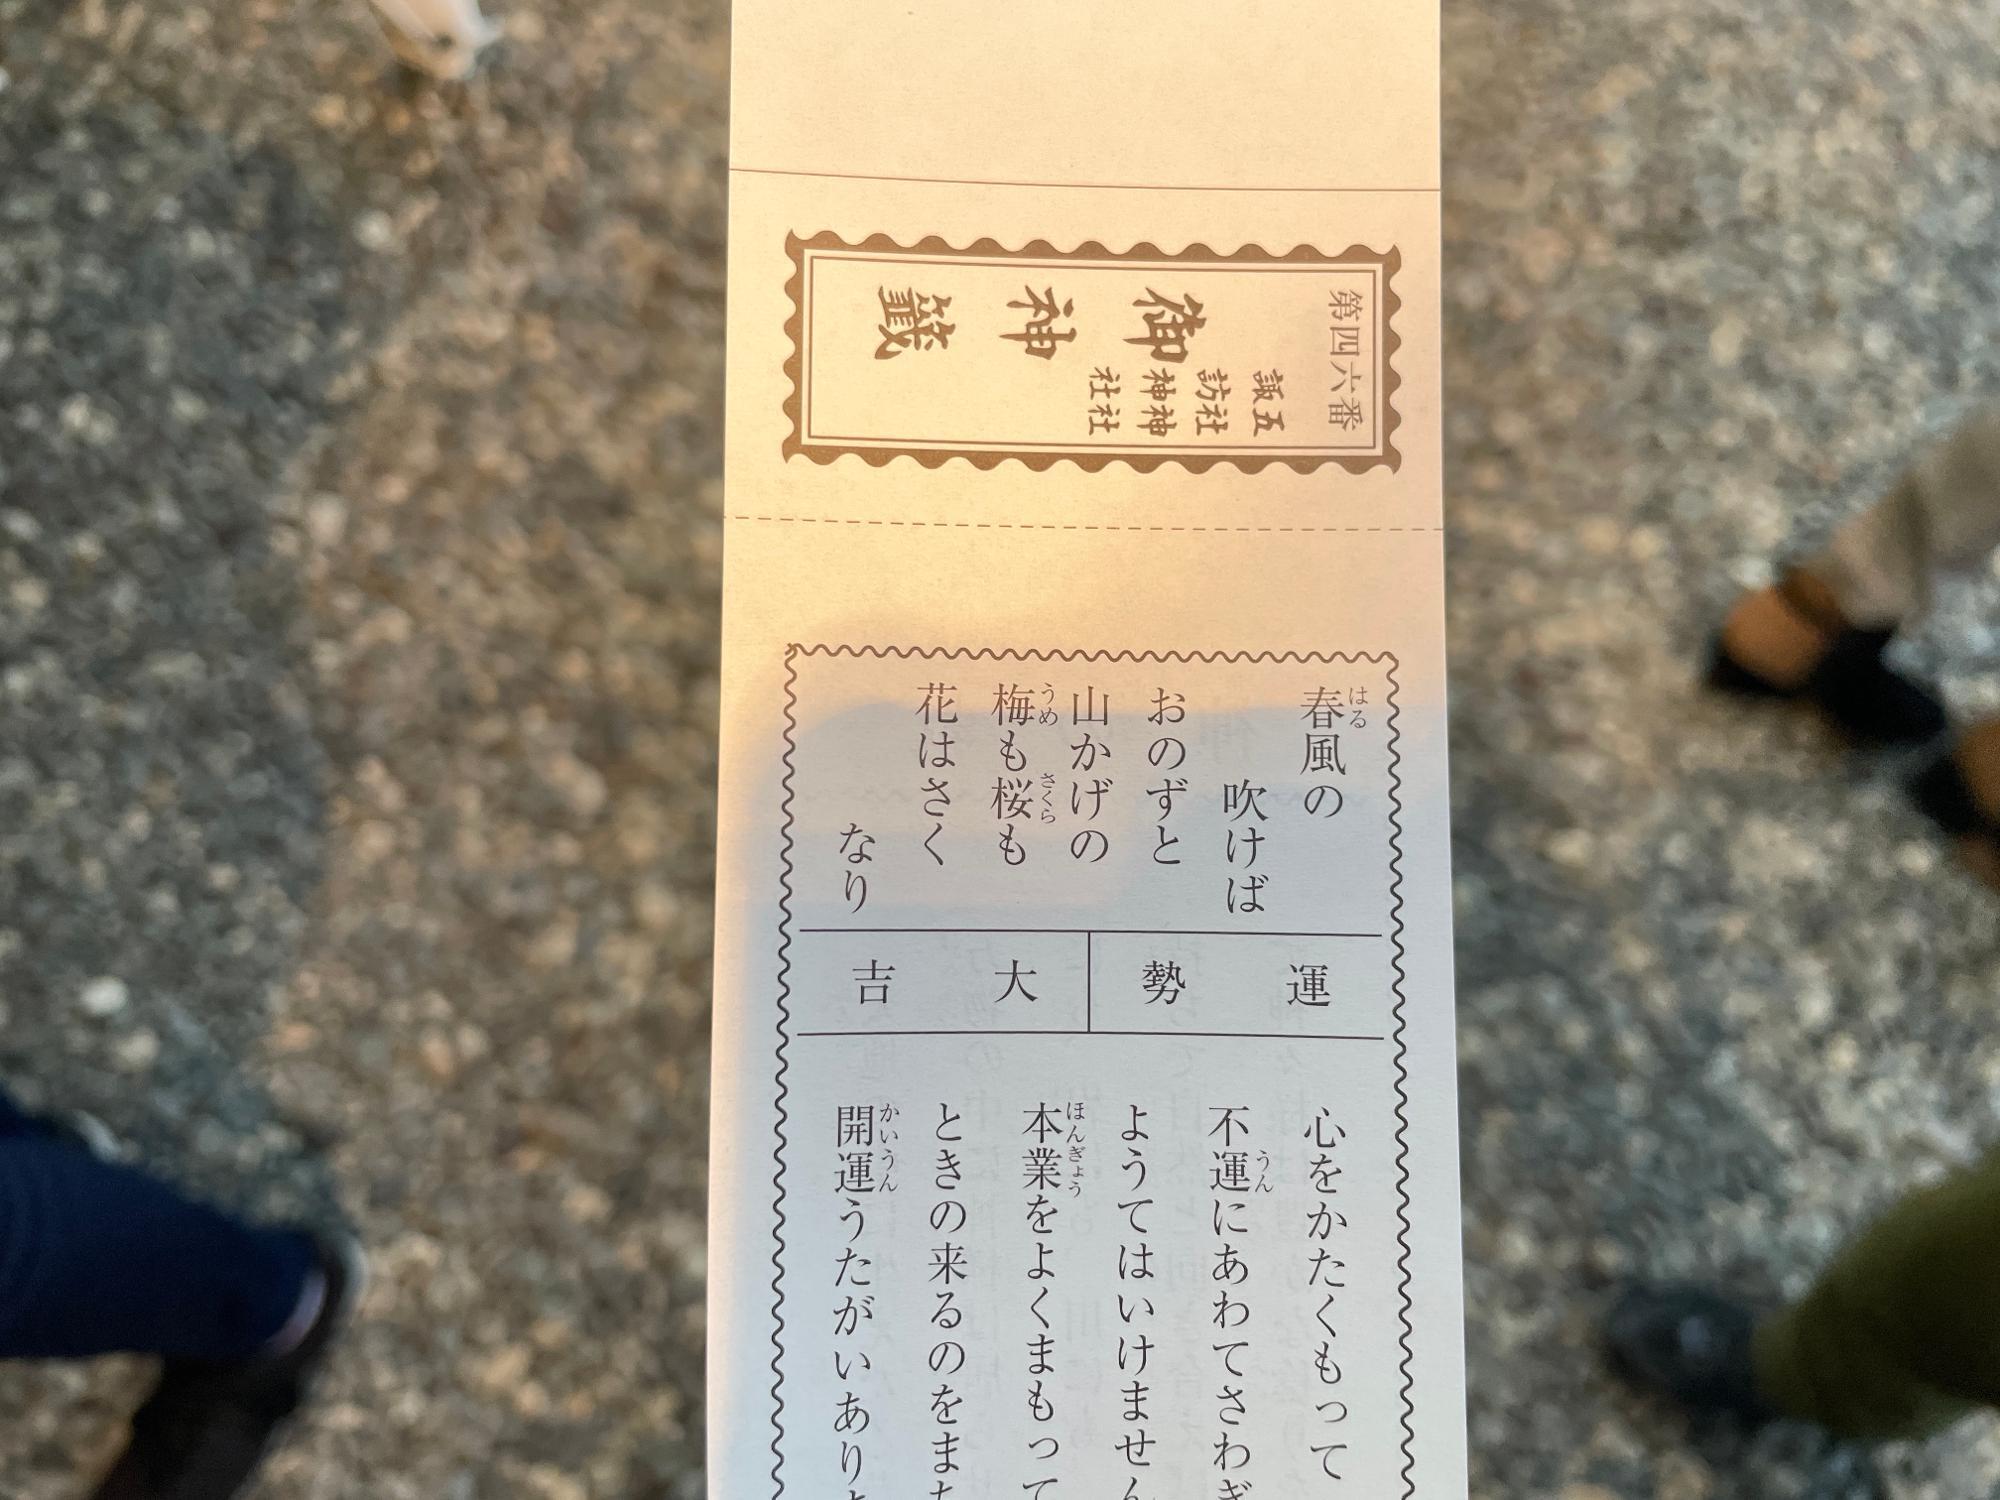 第四六番
五社神社
諏訪神社
御神籤
春風の
吹けば
おのずと
山かげの
梅も桜も
花はさく
なり
運勢
大吉
心をかたくもって
不運にあわてさわぎ
ようてはいけません
本業をよくまもって
ときの来るのをまち
開運うたがいあり
はる
うめ
さくら
うん
ほんぎょう
かいうん